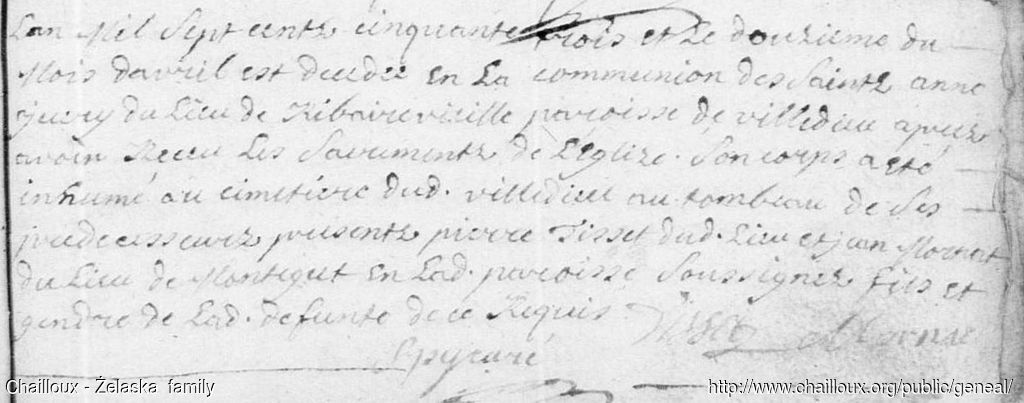 Lan Mil Sept centz cinquante trois et Le douzieme du
Mois davril est decedee En La communion des Saintz anne
du Lieu de Ribairevieille paroisse de villedieu aprez
avoir Receu Les Sacrementz de Leglize. Son corps a eté
inhumé au cimetiere dud. villedieu au tombeau de Ses
predecesseurz presentz pierre Tisset dud. Lieu et jean
du Lieu de Montegut En Lad. paroisse Soussignez fils et
gendre de Lad. defunte de ce Requis
curé
Chailloux - Żelaska family
http://www.chailloux.org/public/geneal/